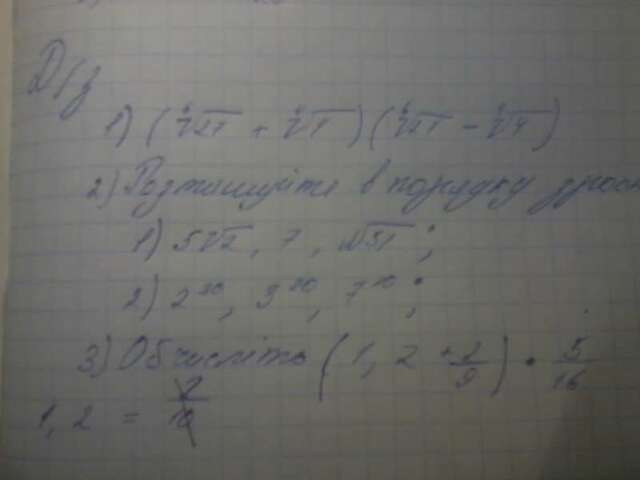 Д/з
1) (⁶√27 + ⁴√4) (⁶√27 − ⁴√4)
2) Розташуйте в порядку зрост
1) 5√2, 7, √51;
2) 2³⁰, 3²⁰, 7¹⁰;
3) Обчисліть (1,2 + 2/9) • 5/16
1,2 = 2/10